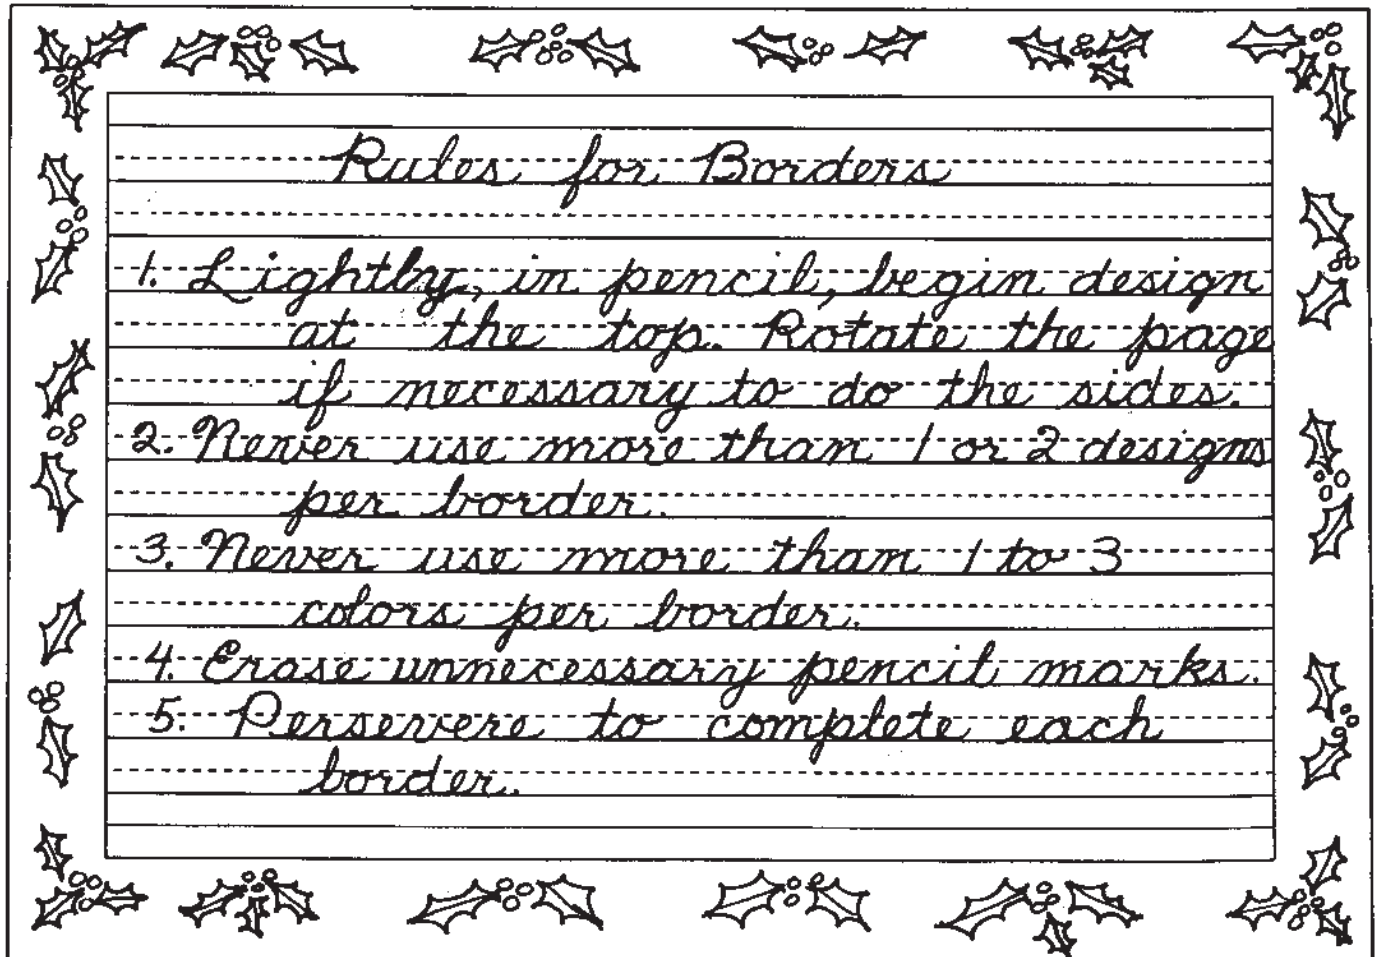 Rules for Borders
1. Lightly, in pencil, begin design
at the top. Rotate the page
if necessary to do the sides.
2. Never use more than 1 or 2 designs
per border.
3. Never use more than 1 to 3
colors per border.
4. Erase unnecessary pencil marks.
5. Perservere to complete each
border.